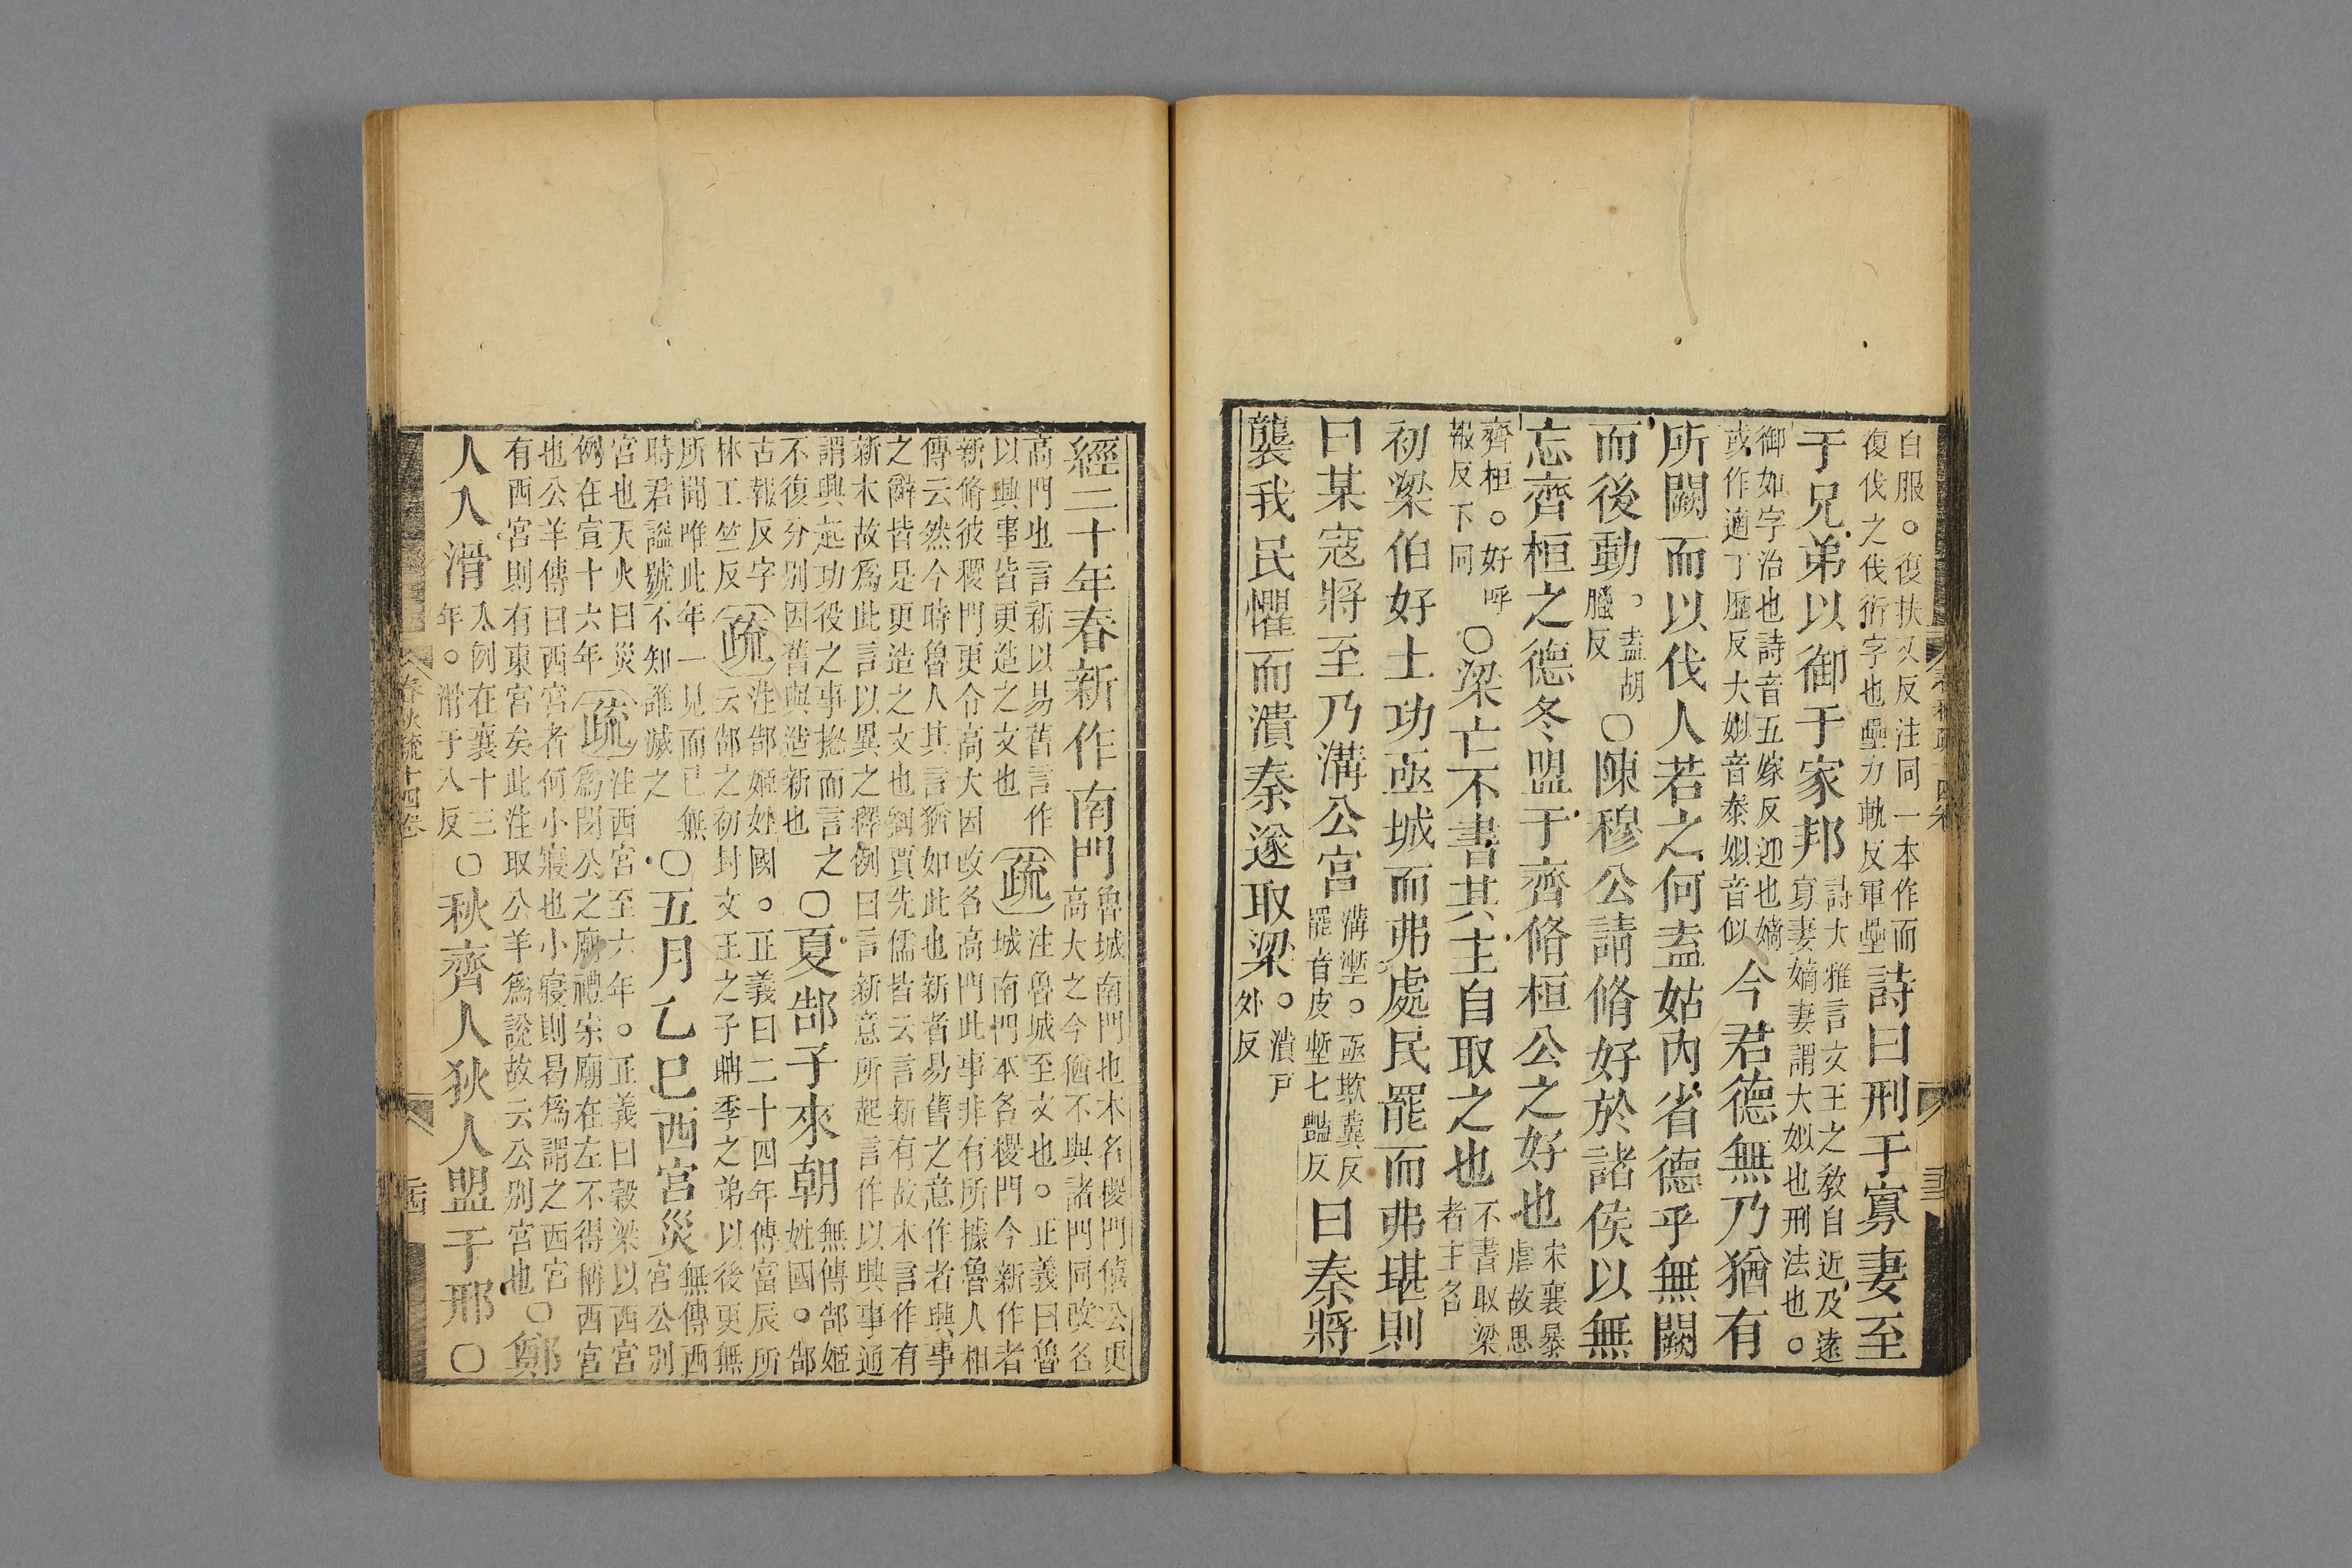 自服。復扶又反注同一本作而
復伐之伐衍字也壘力軌反軍壘
詩曰刑于寡妻至
于兄弟以御于家邦
詩大雅言文王之敎自近及遠
寡妻嫡妻謂大姒也刑法也。
御如字治也詩音五嫁反迎也嫡
或作適丁歷反大姒音泰姒音似
今君德無乃猶有
所闕而以伐人若之何盍姑內省德乎無闕
而後動
。盍胡
臘反
〇陳穆公請脩好於諸侯以無
忘齊桓之德冬盟于齊脩桓公之好也
宋襄暴
虐故思
齊桓。好呼
報反下同
〇梁亡不書其主自取之也
不書取梁
者主名
初梁伯好土功亟城而弗處民罷而弗堪則
曰某寇將至乃溝公宮
溝壍。亟欺冀反
罷音皮塹七豔反
曰秦將
襲我民懼而潰秦遂取梁
。潰戸
外反
經二十年春新作南門
魯城南門也本名稷門僖公更
高大之今猶不與諸門同改名
高門也言新以易舊言作
以興事皆更造之文也
疏
注魯城至文也。正義曰魯
城南門本名稷門今新作者
新脩彼稷門更令高大因改名高門此事非有所據魯人相
傳云然今時魯人其言猶如此也新者易舊之意作者興事
之辭皆是更造之文也劉賈先儒皆云言新有故木言作有
新木故爲此言以異之釋例曰言新意所起言作以興事通
謂興起功役之事揔而言之
不復分别因舊與造新也
〇夏郜子來朝
無傳郜姬
姓國。郜
古報反字
林工竺反
疏
注郜姬姓國。正義曰二十四年傳富辰所
云郜之初封文王之子聃季之弟以後更無
所聞唯此年一見而已無
時君謚號不知誰滅之
〇五月乙巳西宮災
無傳西
宮公别
宮也天火曰災
例在宣十六年
疏
注西宮至六年。正義曰穀梁以西宮
爲閔公之廟禮宗廟在左不得稱西宮
也公羊傳曰西宮者何小寢也小寢則曷爲謂之西宮
有西宮則有東宮矣此注取公羊爲說故云公别宮也
〇鄭
人入滑
入例在襄十三
年。滑于八反
〇秋齊人狄人盟于邢〇
春秋疏十四卷